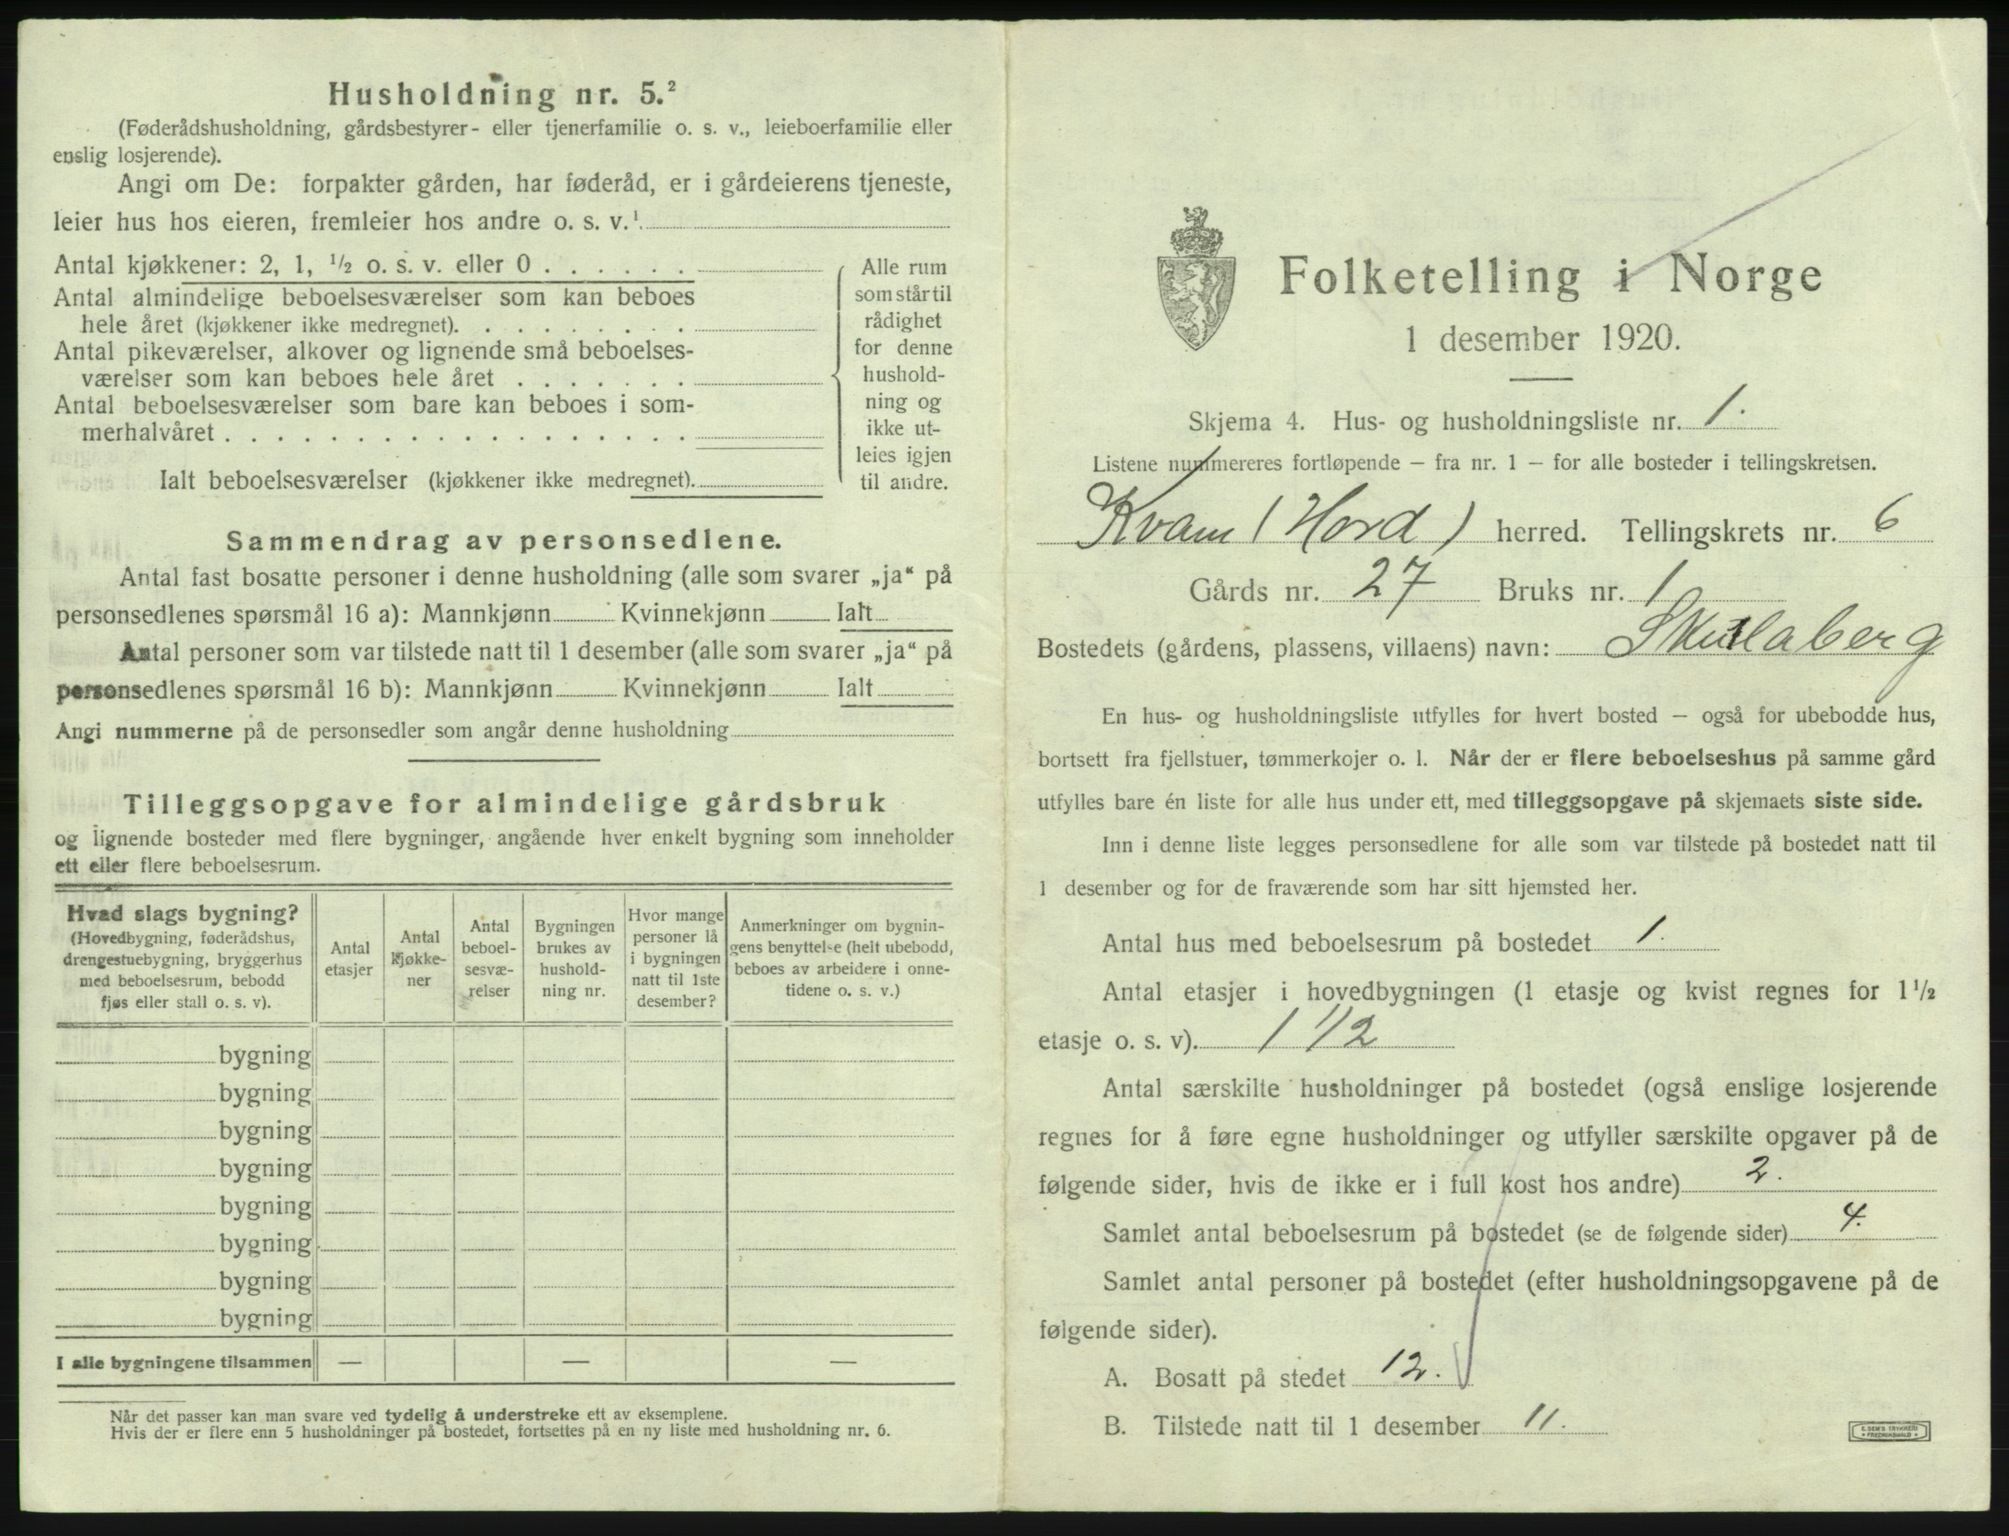 Husholdning nr. 5.²
(Føderådshusholdning, gårdsbestyrer- eller tjenerfamilie o. s. v., leieboerfamilie eller
enslig losjerende).
Angi om De: forpakter gården, har føderåd, er i gårdeierens tjeneste,
leier hus hos eieren, fremleier hos andre o. s. v.¹
Antal kjøkkener: 2, 1, ½ o. s. v. eller 0 . . . . . .
Antal almindelige beboelsesværelser som kan beboes
hele året (kjøkkener ikke medregnet). . . . . . . . .
Antal pikeværelser, alkover og lignende små beboelses-
værelser som kan beboes hele året . . . . . . .
Antal beboelsesværelser som bare kan beboes i som-
merhalvåret . . . . . . . . . . . . . . . . . .
Ialt beboelsesværelser (kjøkkener ikke medregnet).
Alle rum
som står til
rådighet
for denne
hushold-
ning og
ikke ut-
leies igjen
til andre.
Sammendrag av personsedlene.
Antal fast bosatte personer i denne husholdning (alle som svarer „ja“ på
personsedlenes spørsmål 16 a): Mannkjønn Kvinnekjønn Ialt
Antal personer som var tilstede natt til 1 desember (alle som svarer „ja“ på
personsedlenes spørsmål 16 b): Mannkjønn Kvinnekjønn Ialt
Angi nummerne på de personsedler som angår denne husholdning
Tilleggsopgave for almindelige gårdsbruk
og lignende bosteder med flere bygninger, angående hver enkelt bygning som inneholder
ett eller flere beboelsesrum.
Hvad slags bygning?
(Hovedbygning, føderådshus,
drengestuebygning, bryggerhus
med beboelsesrum, bebodd
fjøs eller stall o. s. v).
Antal
etasjer
Antal
kjøkke-
ner
Antal
beboel-
sesvæ-
relser
Bygningen
brukes av
hushold-
ning nr.
Hvor mange
personer lå
i bygningen
natt til 1ste
desember?
Anmerkninger om bygnin-
gens benyttelse (helt ubebodd,
beboes av arbeidere i onne-
tidene o. s. v.)
bygning
bygning
bygning
bygning
bygning
bygning
bygning
bygning
I alle bygningene tilsammen — — —
Når det passer kan man svare ved tydelig å understreke ett av eksemplene.
Hvis der er flere enn 5 husholdninger på bostedet, fortsettes på en ny liste med husholdning nr. 6.
Folketelling i Norge
1 desember 1920.
Skjema 4. Hus- og husholdningsliste nr. 1.
Listene nummereres fortløpende — fra nr. 1 — for alle bosteder i tellingskretsen.
Kvam (Hord) herred. Tellingskrets nr. 6
Gårds nr. 27 Bruks nr. 1
Bostedets (gårdens, plassens, villaens) navn:
En hus- og husholdningsliste utfylles for hvert bosted — også for ubebodde hus,
bortsett fra fjellstuer, tømmerkojer o. l. Når der er flere beboelseshus på samme gård
utfylles bare én liste for alle hus under ett, med tilleggsopgave på skjemaets siste side.
Inn i denne liste legges personsedlene for alle som var tilstede på bostedet natt til
1 desember og for de fraværende som har sitt hjemsted her.
Antal hus med beboelsesrum på bostedet 1.
Antal etasjer i hovedbygningen (1 etasje og kvist regnes for 1½
etasje o. s. v). 1 1/2
Antal særskilte husholdninger på bostedet (også enslige losjerende
regnes for å føre egne husholdninger og utfyller særskilte opgaver på de
følgende sider, hvis de ikke er i full kost hos andre) 2.
Samlet antal beboelsesrum på bostedet (se de følgende sider) 4.
Samlet antal personer på bostedet (efter husholdningsopgavene på de
følgende sider).
A. Bosatt på stedet 12.
B. Tilstede natt til 1 desember 11.